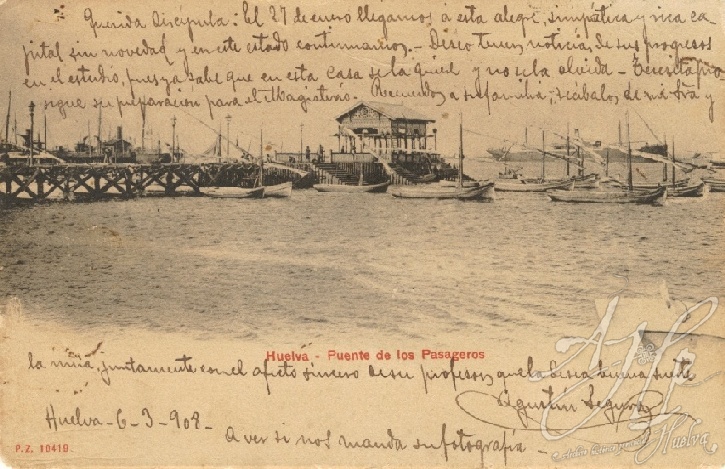 Querida Discípula: El 27 de enero llegamos á esta alegre, simpática y rica ca
pital sin novedad y en este estado continuamos.- Deseo tener noticias de sus progresos
en el estudio, pues ya sabe que en esta casa se la quiere y no se la olvida -
sigue su preparación para el Magisterio. Recuerdos a su familia, recíbalos de mi Sra y
Huelva - Puente de los Pasageros
la niña, juntamente con el afecto sincero de su profesor, que la desea buena suerte
Agustín Segura
Huelva - 6-3-908-
A ver si nos manda su fotografía -
P.Z. 10419.
Huelva